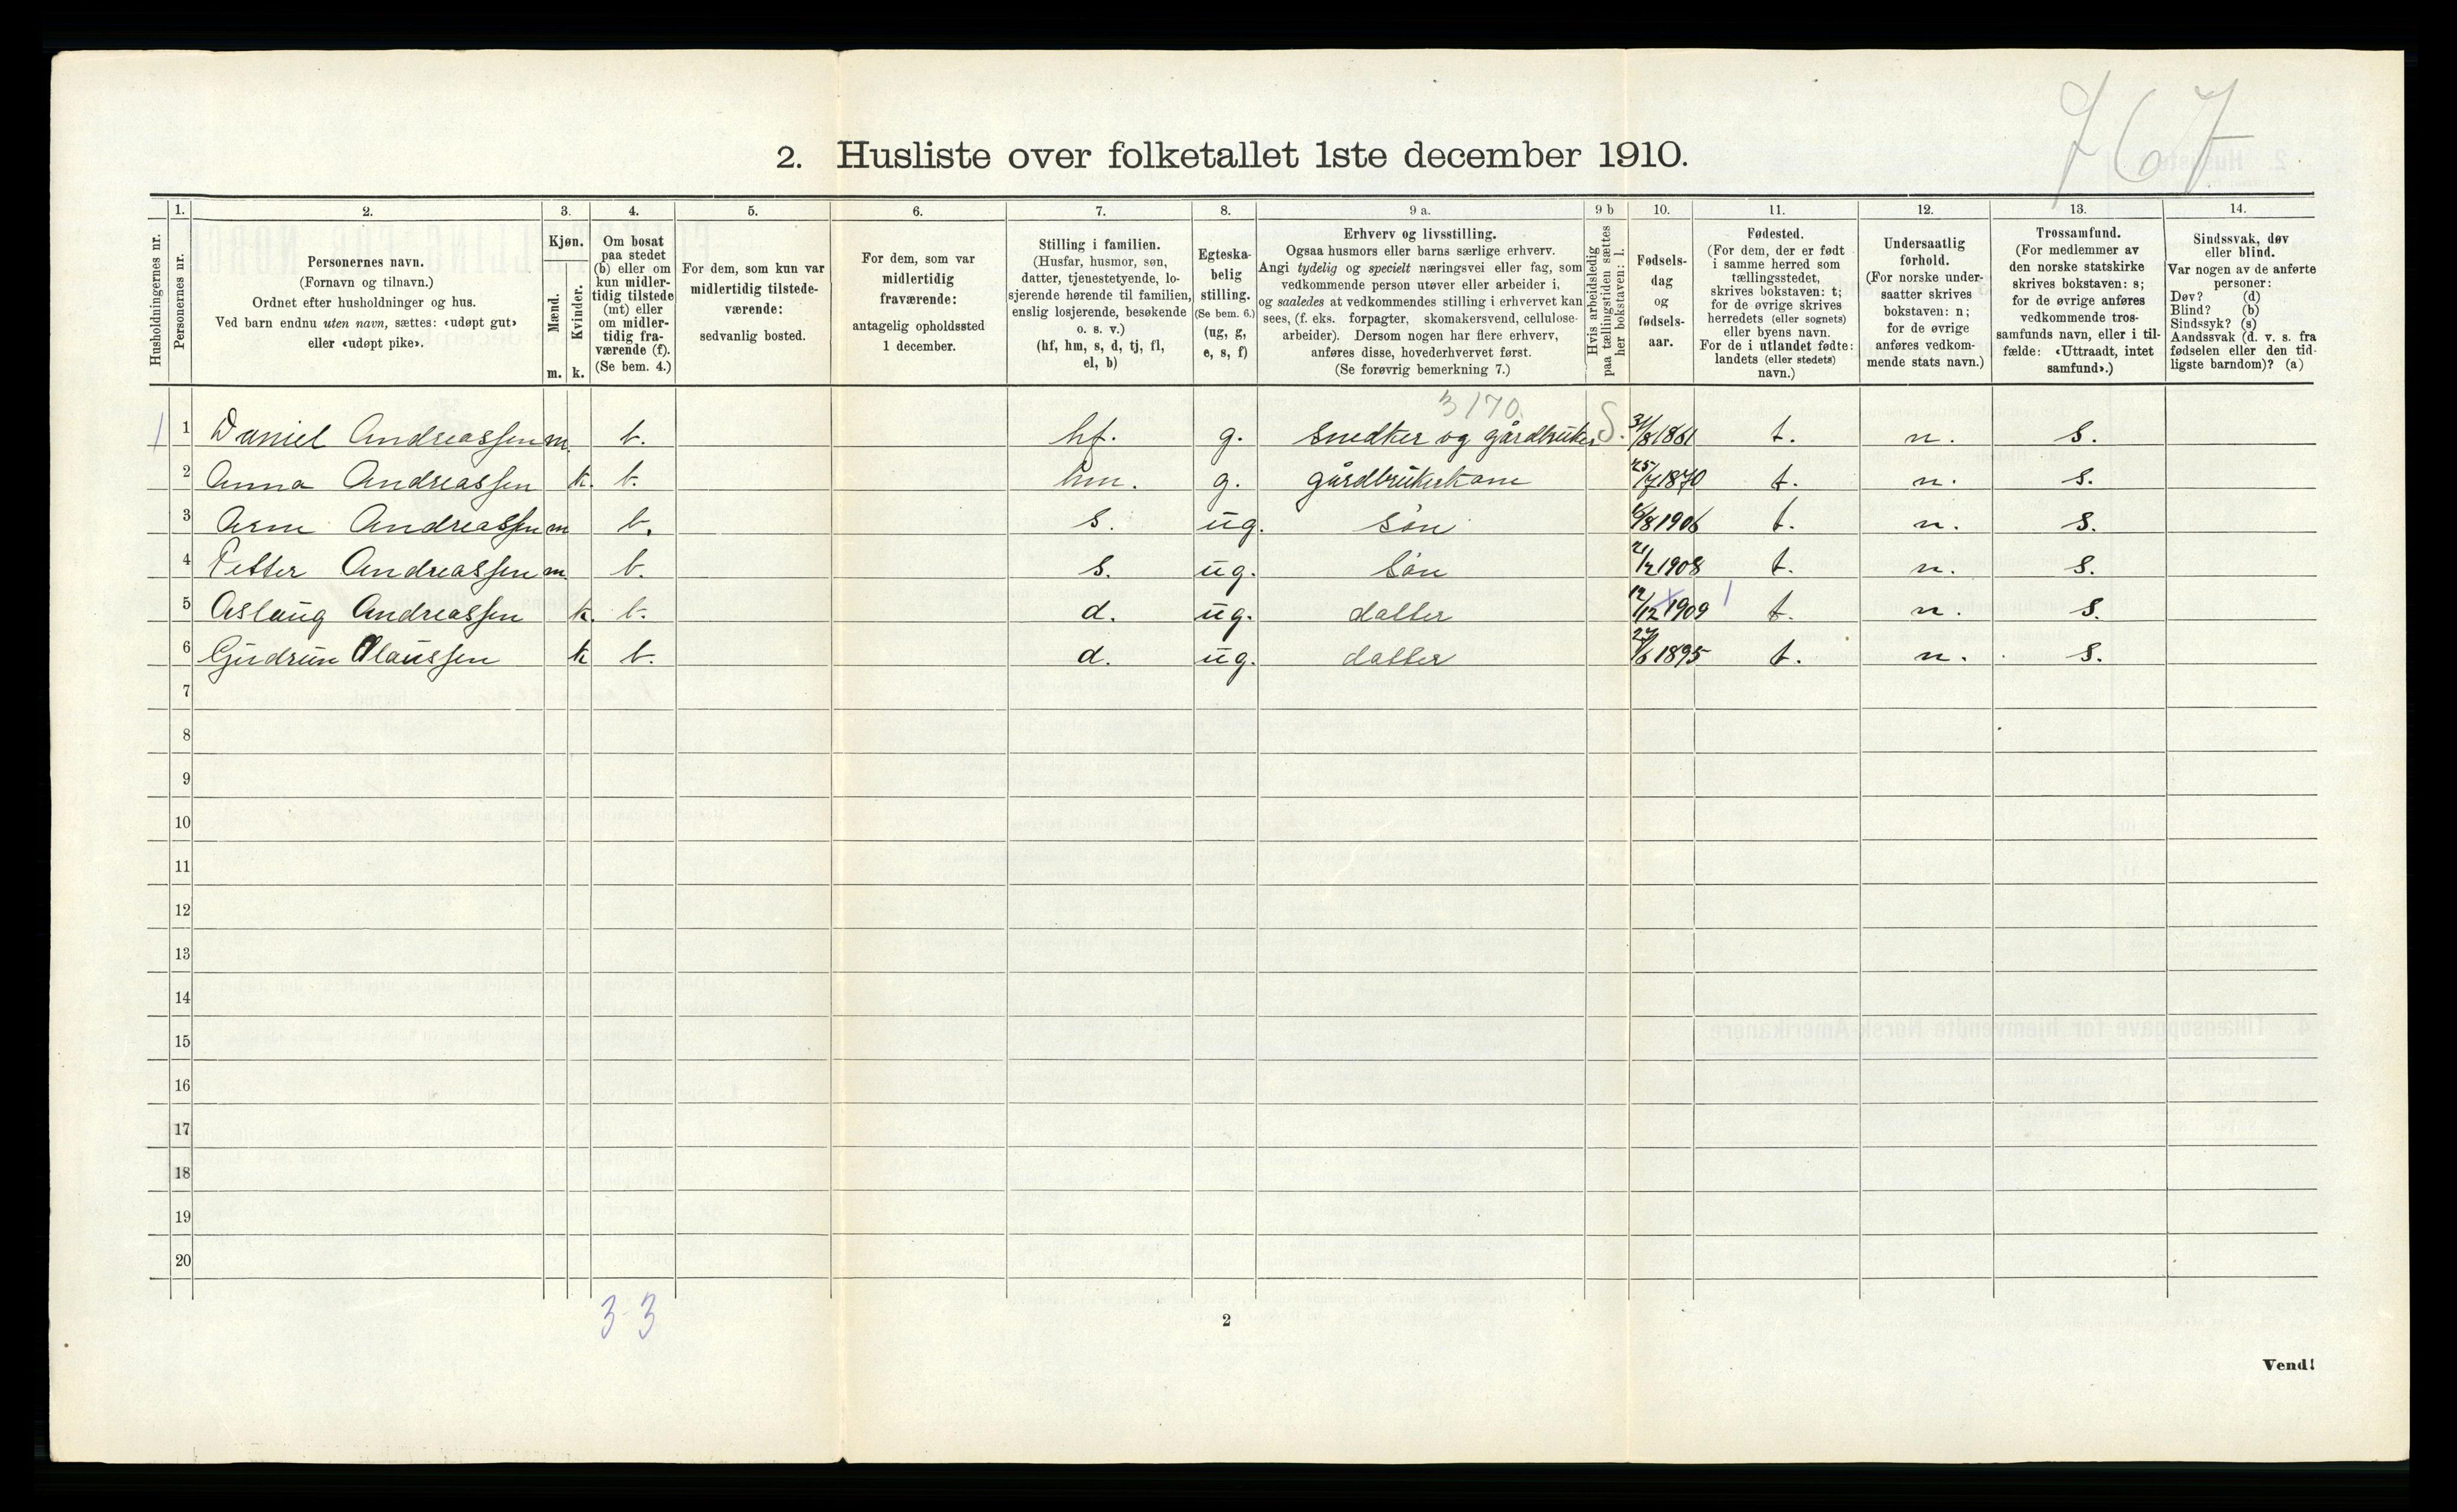 767
2. Husliste over folketallet 1ste december 1910.
Husholdningernes nr.
1.
Personernes nr.
2.
Personernes navn.
(Fornavn og tilnavn.)
Ordnet efter husholdninger og hus.
Ved barn endnu uten navn, sættes: «udøpt gut»
eller «udøpt pike».
3.
Kjøn.
Mænd.
Kvinder.
m. k.
4.
Om bosat
paa stedet
(b) eller om
kun midler-
tidig tilstede
(mt) eller
om midler-
tidig fra-
værende (f).
(Se bem. 4.)
5.
For dem, som kun var
midlertidig tilstede-
værende:
sedvanlig bosted.
6.
For dem, som var
midlertidig
fraværende:
antagelig opholdssted
1 december.
7.
Stilling i familien.
(Husfar, husmor, søn,
datter, tjenestetyende, lo-
sjerende hørende til familien,
enslig losjerende, besøkende
o. s. v.)
(hf, hm, s, d, tj, fl,
el, b)
8.
Egteska-
belig
stilling.
(Se bem. 6.)
(ug, g,
e, s, f)
9 a.
Erhverv og livsstilling.
Ogsaa husmors eller barns særlige erhverv.
Angi tydelig og specielt næringsvei eller fag, som
vedkommende person utøver eller arbeider i,
og saaledes at vedkommendes stilling i erhvervet kan
sees, (f. eks. forpagter, skomakersvend, cellulose-
arbeider). Dersom nogen har flere erhverv,
anføres disse, hovederhvervet først.
(Se forøvrig bemerkning 7.)
9 b
Hvis arbeidsledig
paa tællingstiden sættes
her bokstaven: l.
10.
Fødsels-
dag
og
fødsels-
aar.
11.
Fødested.
(For dem, der er født
i samme herred som
tællingsstedet,
skrives bokstaven: t;
for de øvrige skrives
herredets (eller sognets)
eller byens navn.
For de i utlandet fødte:
landets (eller stedets)
navn.)
12.
Undersaatlig
forhold.
(For norske under-
saatter skrives
bokstaven: n;
for de øvrige
anføres vedkom-
mende stats navn.)
13.
Trossamfund.
(For medlemmer av
den norske statskirke
skrives bokstaven: s;
for de øvrige anføres
vedkommende tros-
samfunds navn, eller i til-
fælde: «Uttraadt, intet
samfund».)
14.
Sindssvak, døv
eller blind.
Var nogen av de anførte
personer:
Døv? (d)
Blind? (b)
Sindssyk? (s)
Aandssvak (d. v. s. fra
fødselen eller den tid-
ligste barndom)? (a)
3170.
1 1 Daniel Andreassen m. b. hf. g. snedker og gårdbruker S. 31/8 1861 t. n. s.
2 Anna Andreassen k. b. hm. g. gårdbrukerkone 25/7 1870 t. n. s.
3 Arne Andreassen m b. s. ug. søn /8 1906 t. n. s.
4 Petter Andreassen m. b. s. ug. søn 21/2 1908 t. n. s.
5 Aslaug Andreassen k. b. d. ug. datter 12/12 1909 t. n. s.
6 Gudrun Olaussen k b. d. ug. datter 27/6 1895 t. n. s.
7
8
9
10
11
12
13
14
15
16
17
18
19
20
3-3
2
Vend!